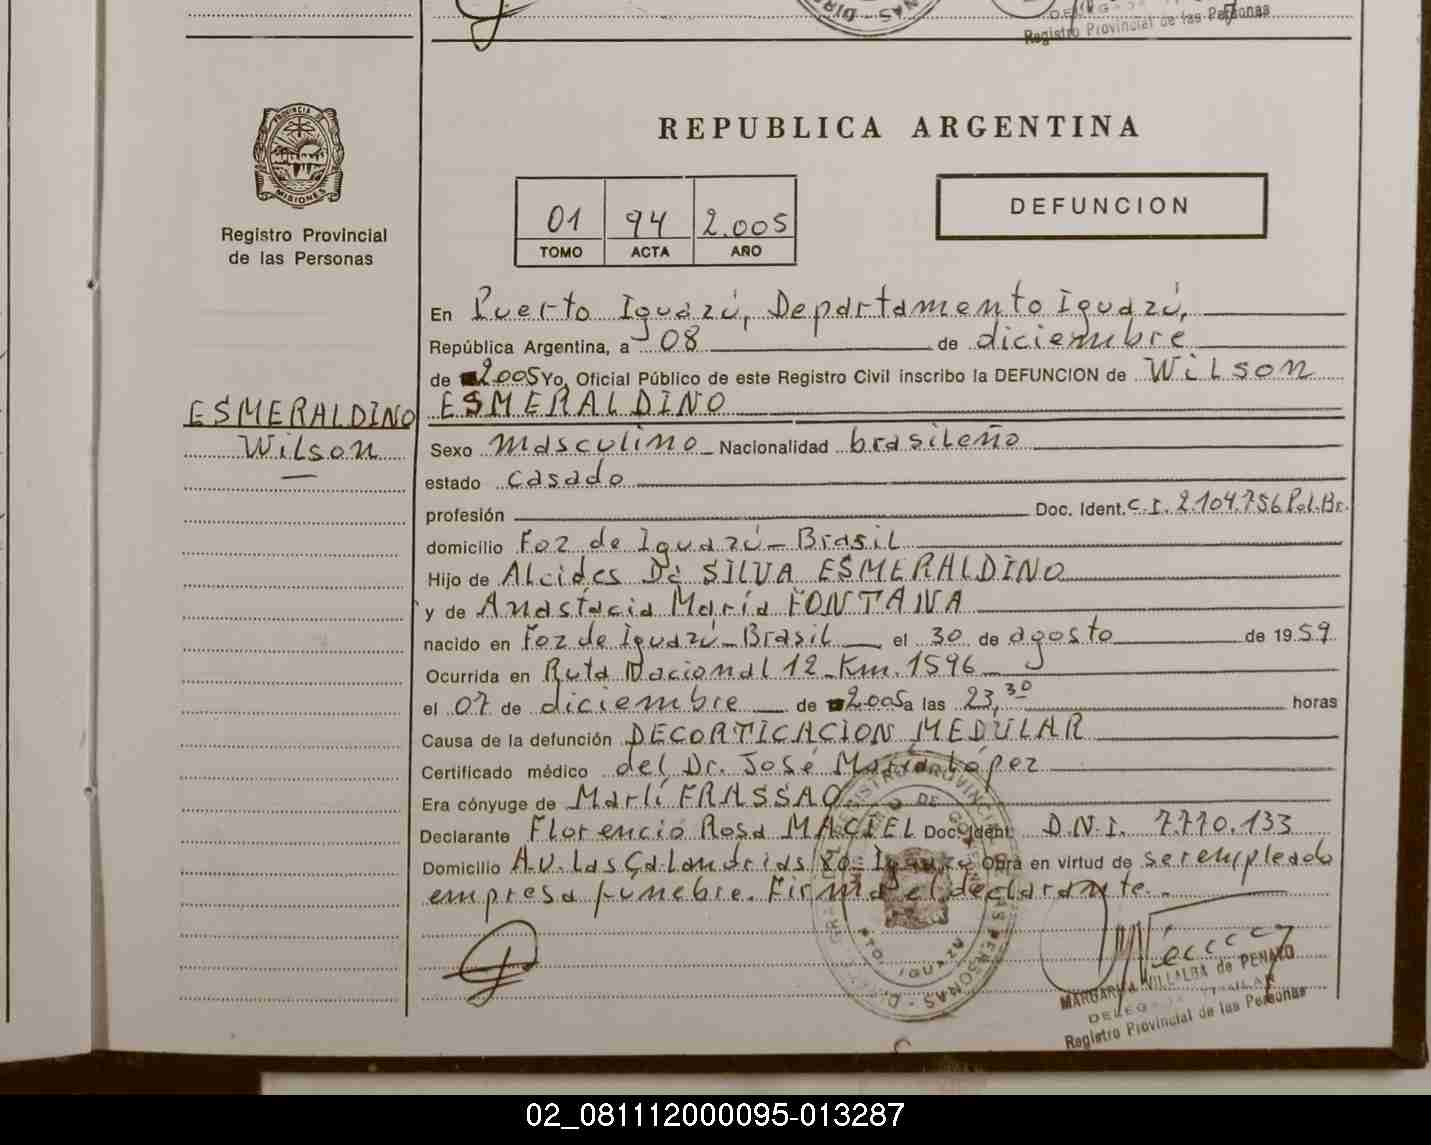 Registro Provincial de las Personas
PROVINCIA DE
MISIONES
Registro Provincial
de las Personas
REPUBLICA ARGENTINA
01 94 2.005
TOMO ACTA AÑO
DEFUNCION
En Puerto Iguazú, Departamento Iguazú,
República Argentina, a 08 de diciembre
de 2005 Yo, Oficial Público de este Registro Civil inscribo la DEFUNCION de Wilson
ESMERALDINO
ESMERALDINO
Wilson
Sexo masculino Nacionalidad brasileño
estado casado
profesión Doc. Ident. C.I. 2.104.756 Pol.Br.
domicilio Foz de Iguazú - Brasil
Hijo de Alcides Da SILVA ESMERALDINO
y de Anastacia María FONTANA
nacido en Foz de Iguazú - Brasil el 30 de agosto de 1959
Ocurrida en Ruta Nacional 12 - Km. 1596
el 07 de diciembre de 2005 a las 23,30 horas
Causa de la defunción DECORTICACION MEDULAR
Certificado médico del Dr. José María López
Era cónyuge de Marlí FRASSAO
Declarante Florencio Rosa MACIEL Doc. Ident. D.N.I. 7.770.133
Domicilio Av. Las Calandrias 80 Iguazú Obra en virtud de ser empleado
empresa fúnebre. Firma el declarante.
PTO. IGUAZU
MARGARITA VILLALBA de PENAYO
Registro Provincial de las Personas
02_081112000095-013287